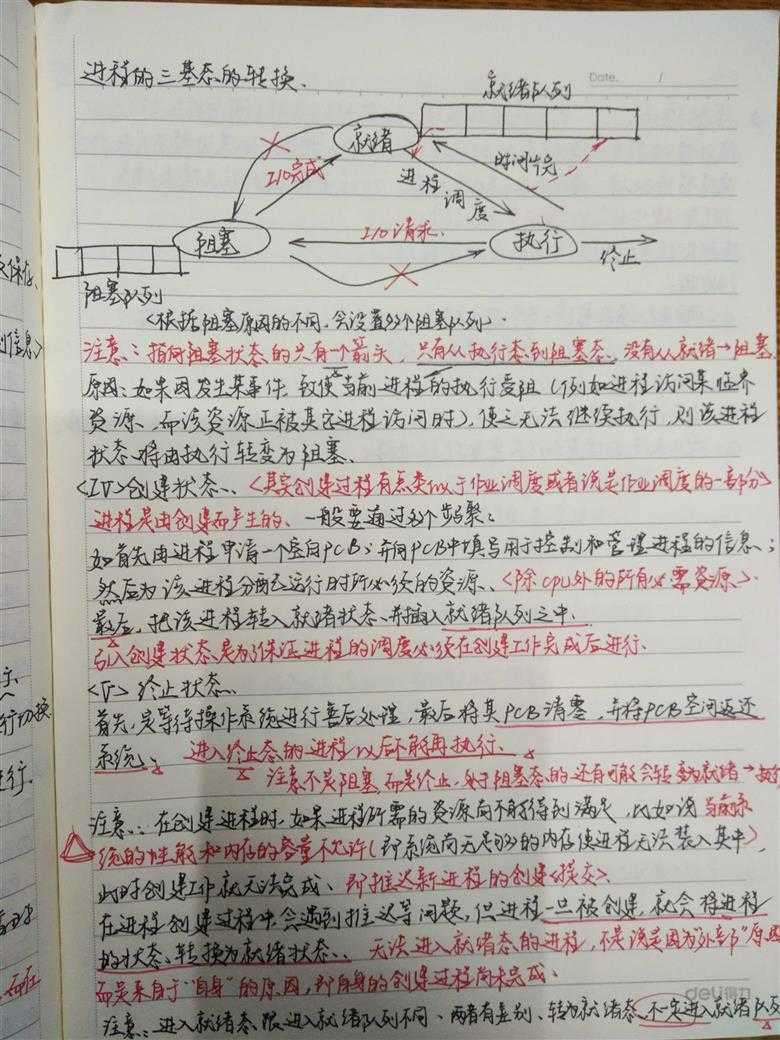 进程的三基态的转换、
Date. /
就绪队列
就绪
I/O完成
进程调度
时间片完
阻塞
I/O请求
执行
终止
阻塞队列
<根据阻塞原因的不同,会设置多个阻塞队列>.
注意:指向阻塞状态的只有一个箭头,只有从执行态到阻塞态,没有从就绪→阻塞
原因:如果因发生某事件,致使当前进程的执行受阻(例如进程访问某临界
资源、而该资源正被其它进程访问时),使之无法继续执行,则该进程
状态将由执行转变为阻塞、
<IV>创建状态、<其实创建过程有点类似于作业调度或者说是作业调度的一部分>
进程是由创建而产生的、一般要通过多个步骤:
如首先由进程申请一个空白PCB;并向PCB中填写用于控制和管理进程的信息;
然后为该进程分配运行时所必须的资源、<除cpu外的所有必需资源>.
最后,把该进程转入就绪状态、并插入就绪队列之中、
引入创建状态、是为了保证进程的调度必须在创建工作完成后进行、
<V>终止状态、
首先,是等待操作系统进行善后处理,最后将其PCB清零,并将PCB空间返还
系统、进入终止态的进程以后不能再执行、
注意不是阻塞而是终止,处于阻塞态的还有可能会转变为就绪→执行
注意:在创建进程时,如果进程所需的资源尚不能得到满足,比如说当前系
统的性能和内存的容量不允许(即系统尚无足够的内存使进程无法装入其中),
此时创建工作就无法完成、即推迟新进程的创建<提交>、
在进程创建过程中会遇到推迟等问题,但进程一旦被创建,就会将进程
的状态、转换为就绪状态、无法进入就绪态的进程,不是说是因为"外部"原因
而是来自于"自身"的原因,即自身的创建过程尚未完成、
deli得力
注意:进入就绪态、跟进入就绪队列不同、两者有差别、转为就绪态、不一定进入就绪队列
保存、
信息>
行切换
进行.